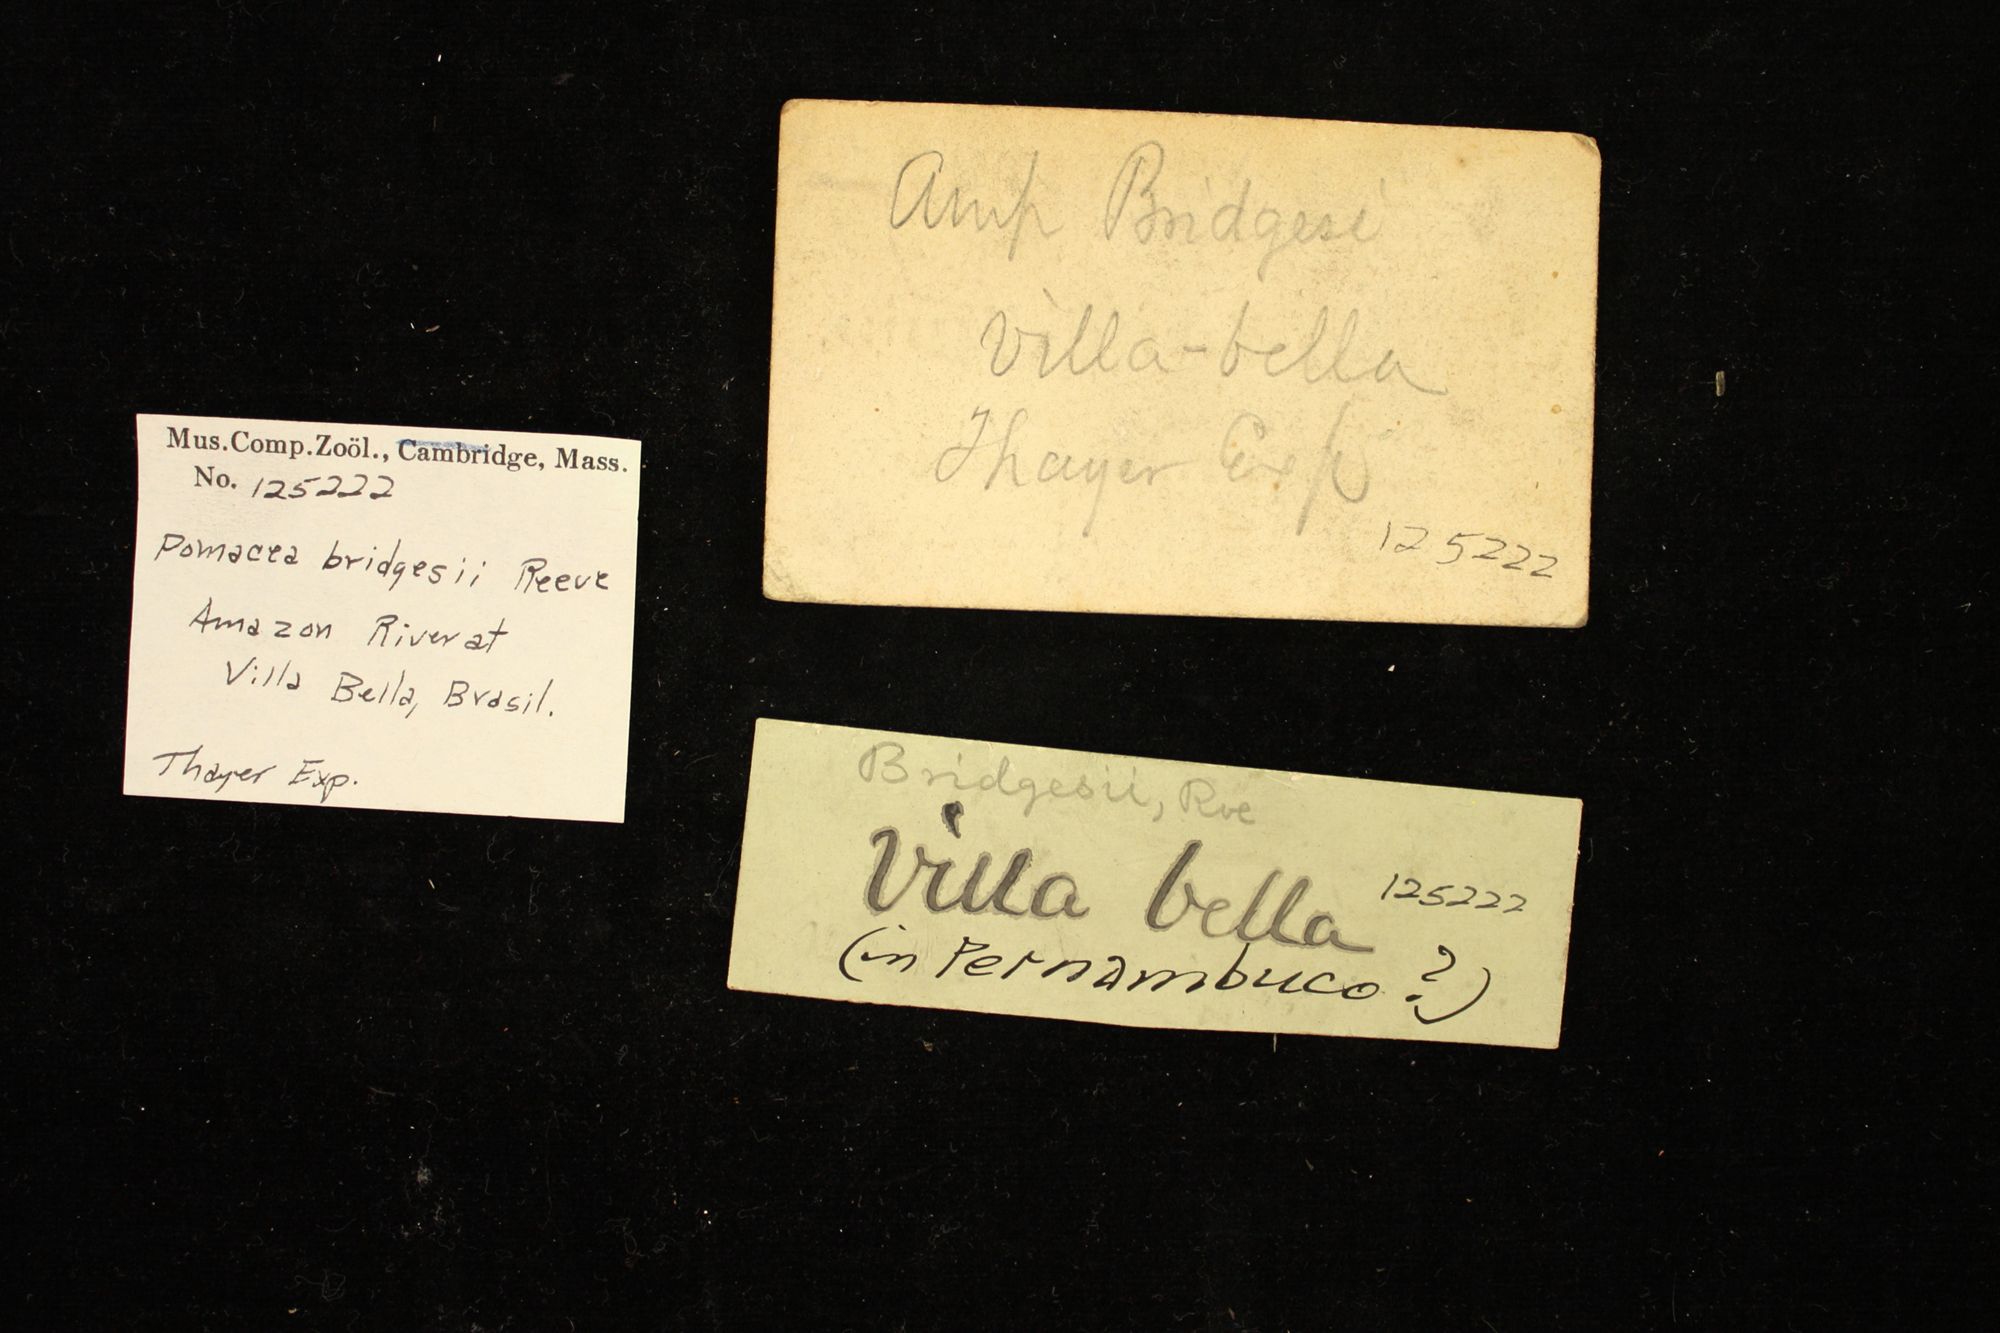 Mus.Comp.Zoöl., Cambridge, Mass.
No. 125222
Pomacea bridgesii Reeve
Amazon River at
Villa Bella, Brasil.
Thayer Exp.
Amp Bridgesi
Villa-bella
Thayer Exp
125222
Bridgesii, Rve
Villa bella
125222
(in Pernambuco?)